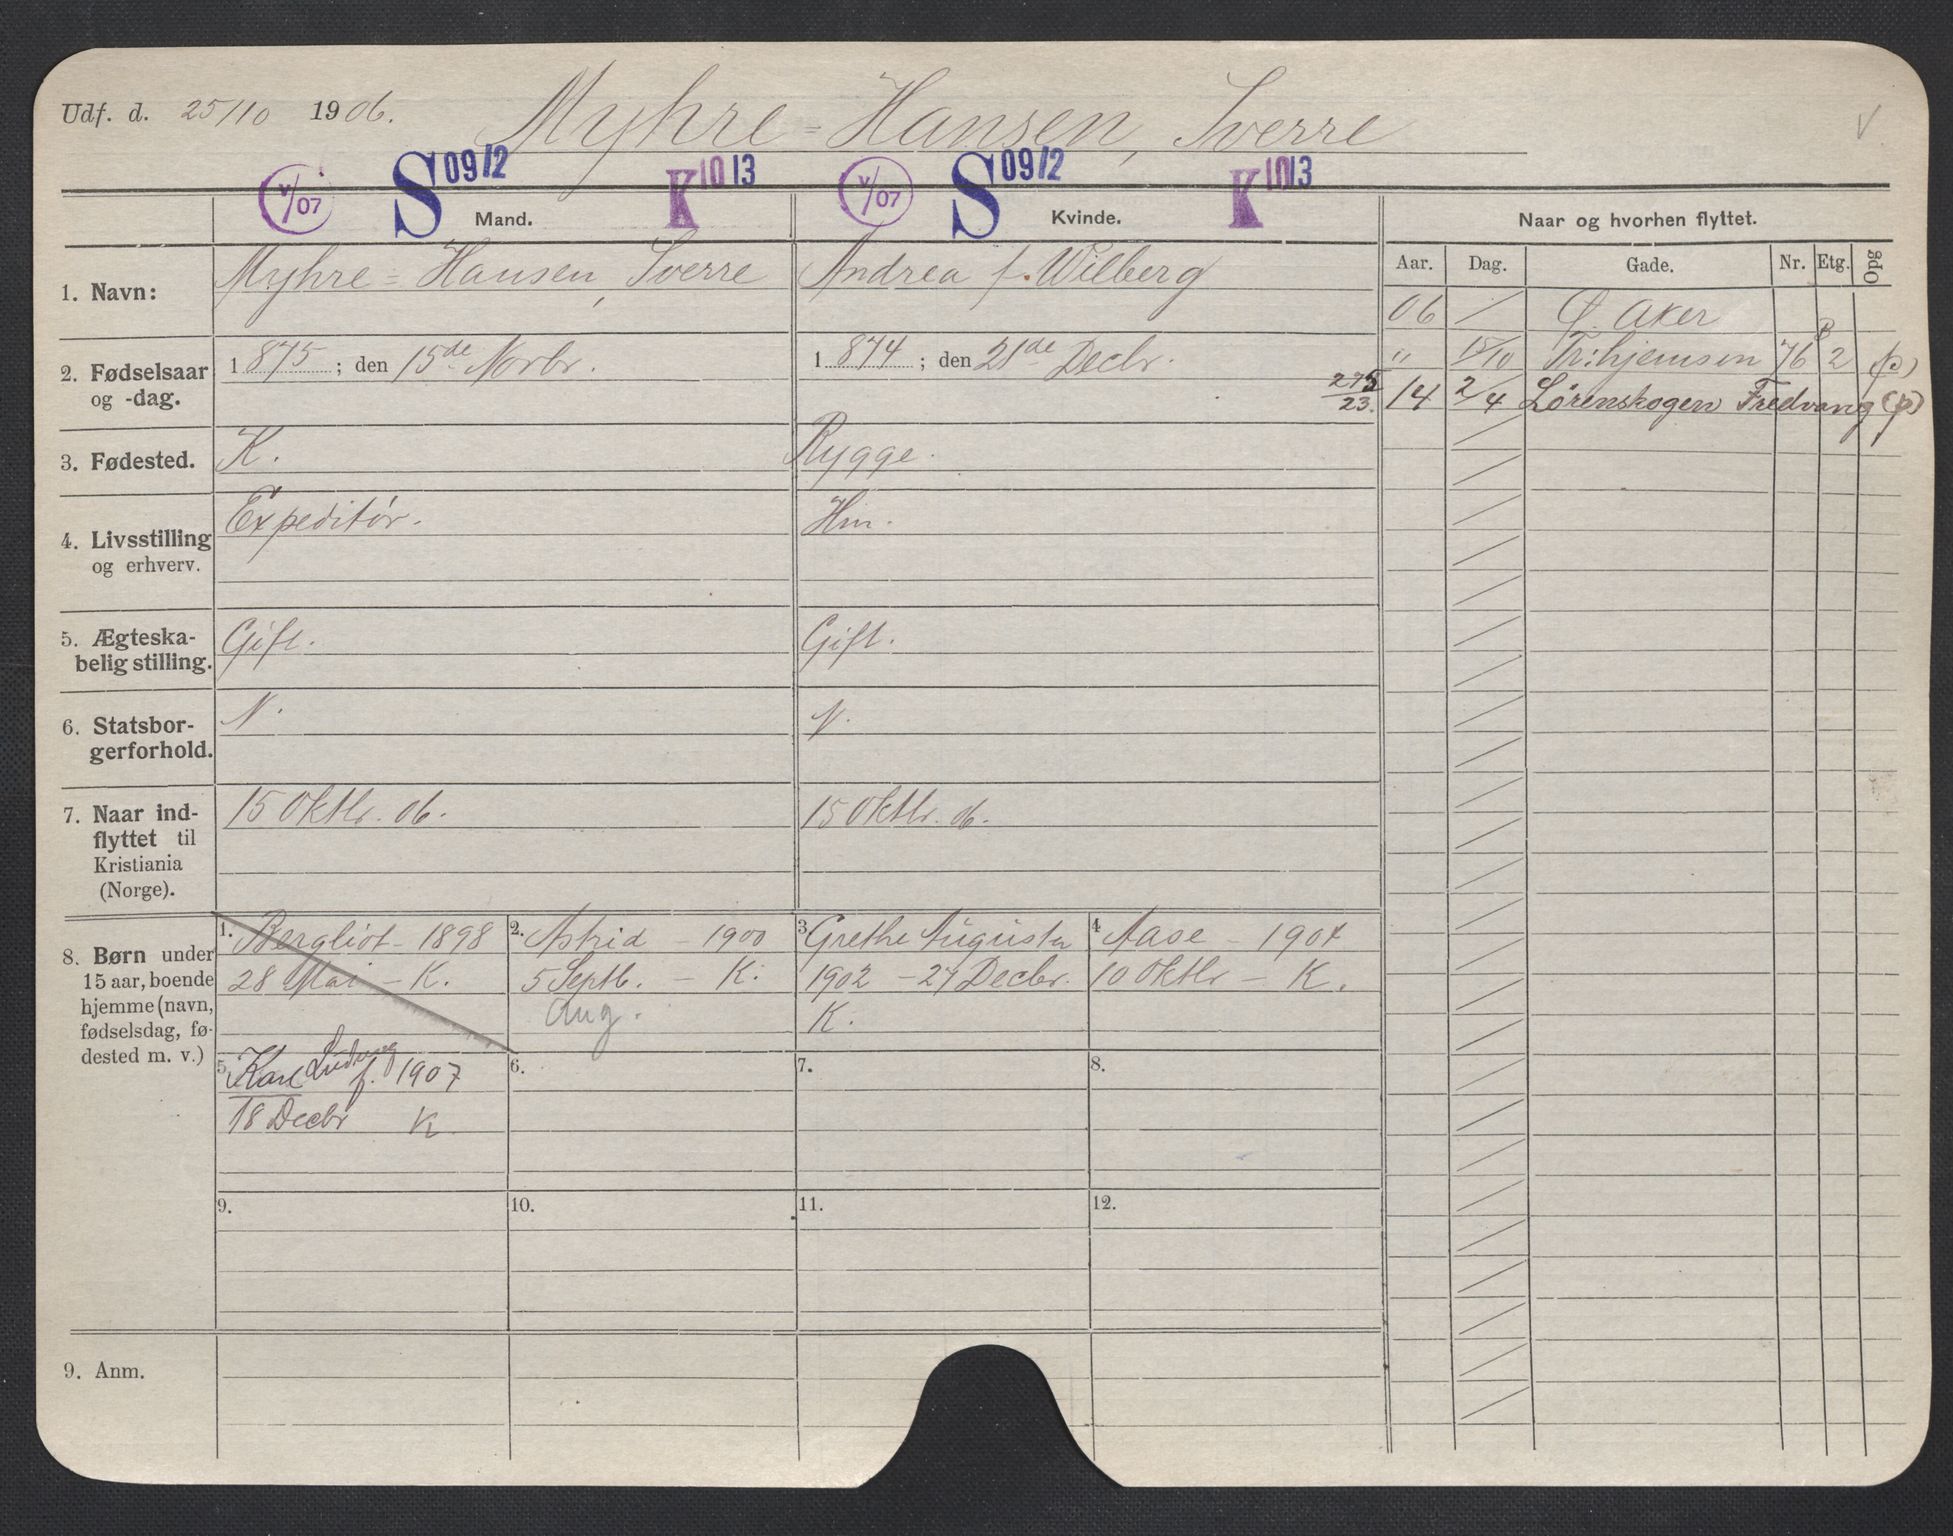 Udf. d. 25/10 1906. Myhre-Hansen, Sverre
V/07 S 09 12 K 10 13 V/07 S 09 12 K 10 13
Mand. Kvinde. Naar og hvorhen flyttet.
Aar. Dag. Gade. Nr. Etg. Opg
1. Navn: Myhre-Hansen, Sverre Andrea f. Wilberg
06 / Ø. Aker
2. Fødselsaar og -dag. 1875; den 15de Novbr. 1874; den 21de Decbr.
" 15/10 Tr:hjemsvn 76 B 2 (p)
275/23. 14 2/4 Lørenskogen Fredvang (p)
3. Fødested. K. Rygge.
4. Livsstilling og erhverv. Expeditør. Hm.
5. Ægteskabelig stilling. Gift. Gift.
6. Statsborgerforhold. N. N.
7. Naar indflyttet til Kristiania (Norge). 15 Oktbr. 06. 15 Oktbr. 06.
8. Børn under 15 aar, boende hjemme (navn, fødselsdag, fødested m. v.)
1. Bergliot - 1898
28 Mai - K.
2. Astrid - 1900
5 Septb. - K.
Aug.
3 Grethe Augusta
1902 - 27 Decbr.
K.
4 Aase - 1904
10 Oktbr - K.
5. Karl Ludvig f. 1907
18 Decbr K
6.
7.
8.
9.
10.
11.
12.
9. Anm.